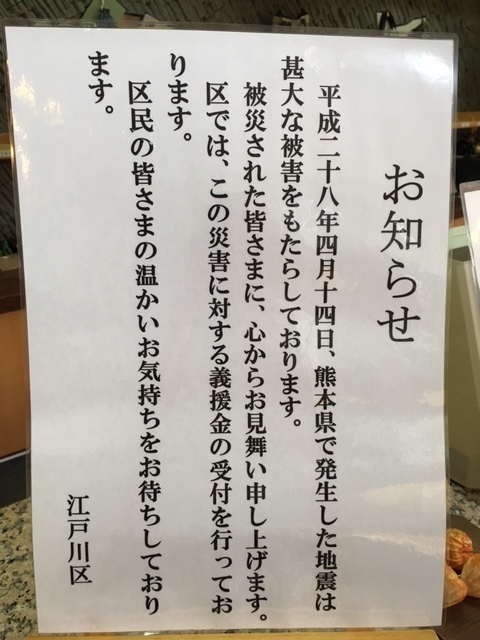 お知らせ
平成二十八年四月十四日、熊本県で発生した地震は
甚大な被害をもたらしております。
被災された皆さまに、心からお見舞い申し上げます。
区では、この災害に対する義援金の受付を行ってお
ります。
区民の皆さまの温かいお気持ちをお待ちしており
ます。
江戸川区